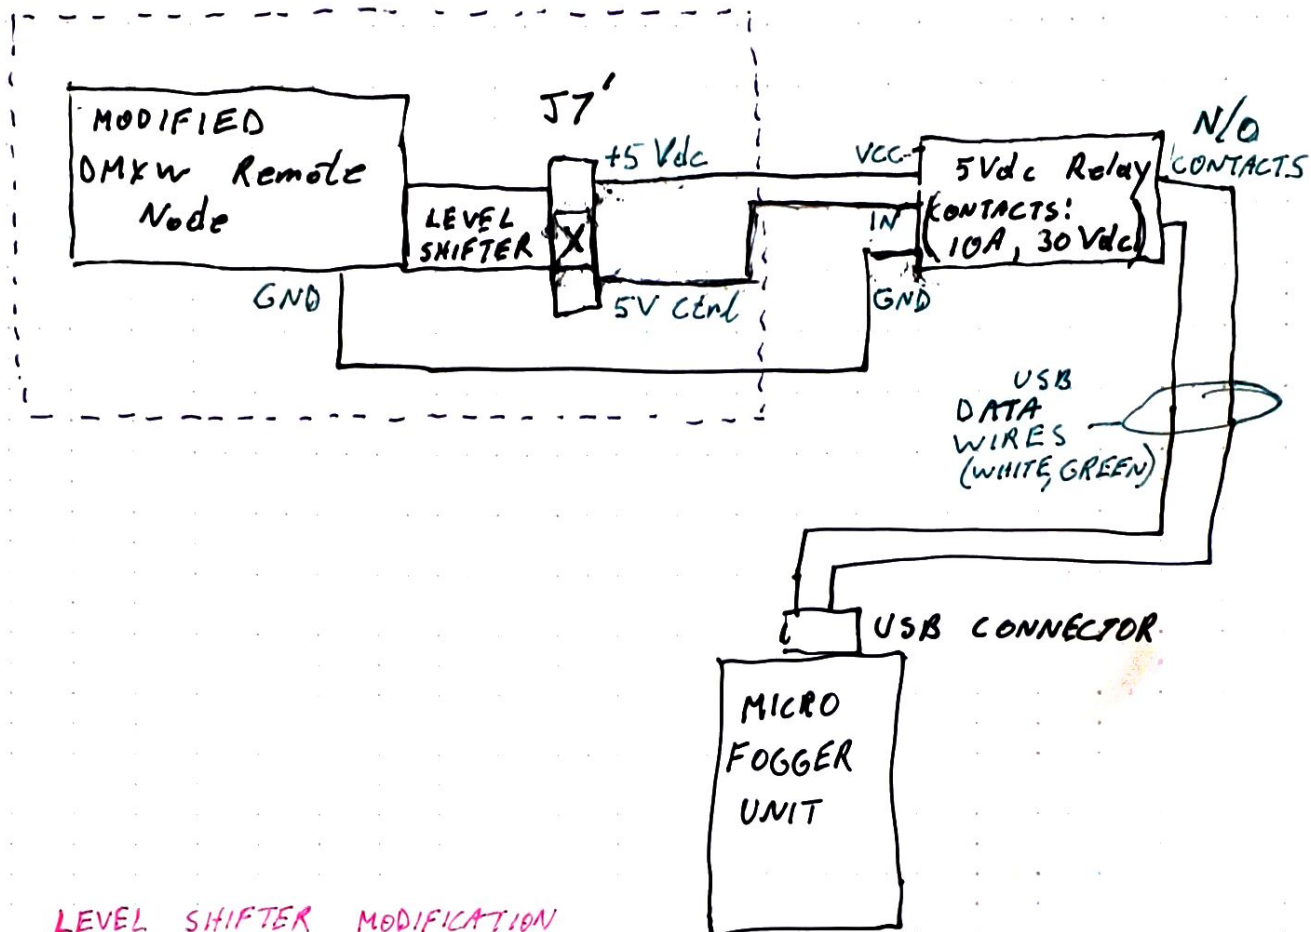 J7'
MODIFIED
DMXW Remote
Node
LEVEL
SHIFTER
X
+5 Vdc
5V Ctrl
GND
VCC
IN
GND
5Vdc Relay
(CONTACTS:
10A, 30Vdc)
N/O
CONTACTS
USB
DATA
WIRES
(WHITE, GREEN)
USB CONNECTOR
MICRO
FOGGER
UNIT
LEVEL SHIFTER MODIFICATION